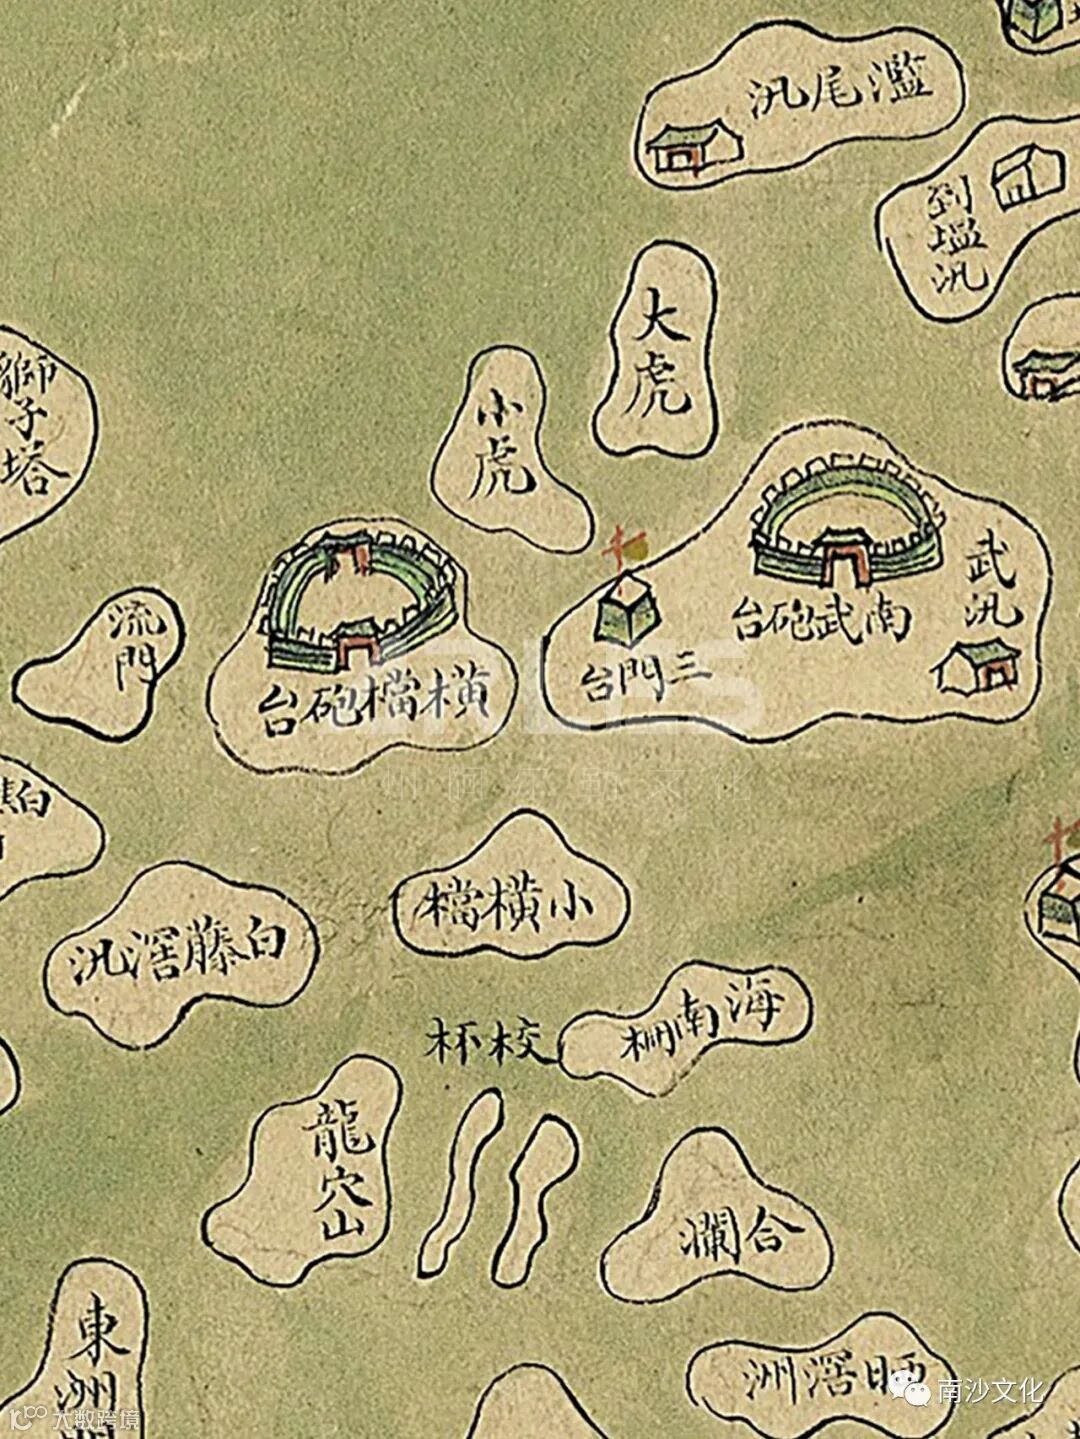 濫尾汛
到塩汛
大虎
小虎
獅子塔
南武砲台
武汛
三門台
橫檔砲台
流門
白藤滘汛
小橫檔
海南柵
校杯
龍穴山
合瀾
東洲
晒滘洲
南沙文化
大数跨境